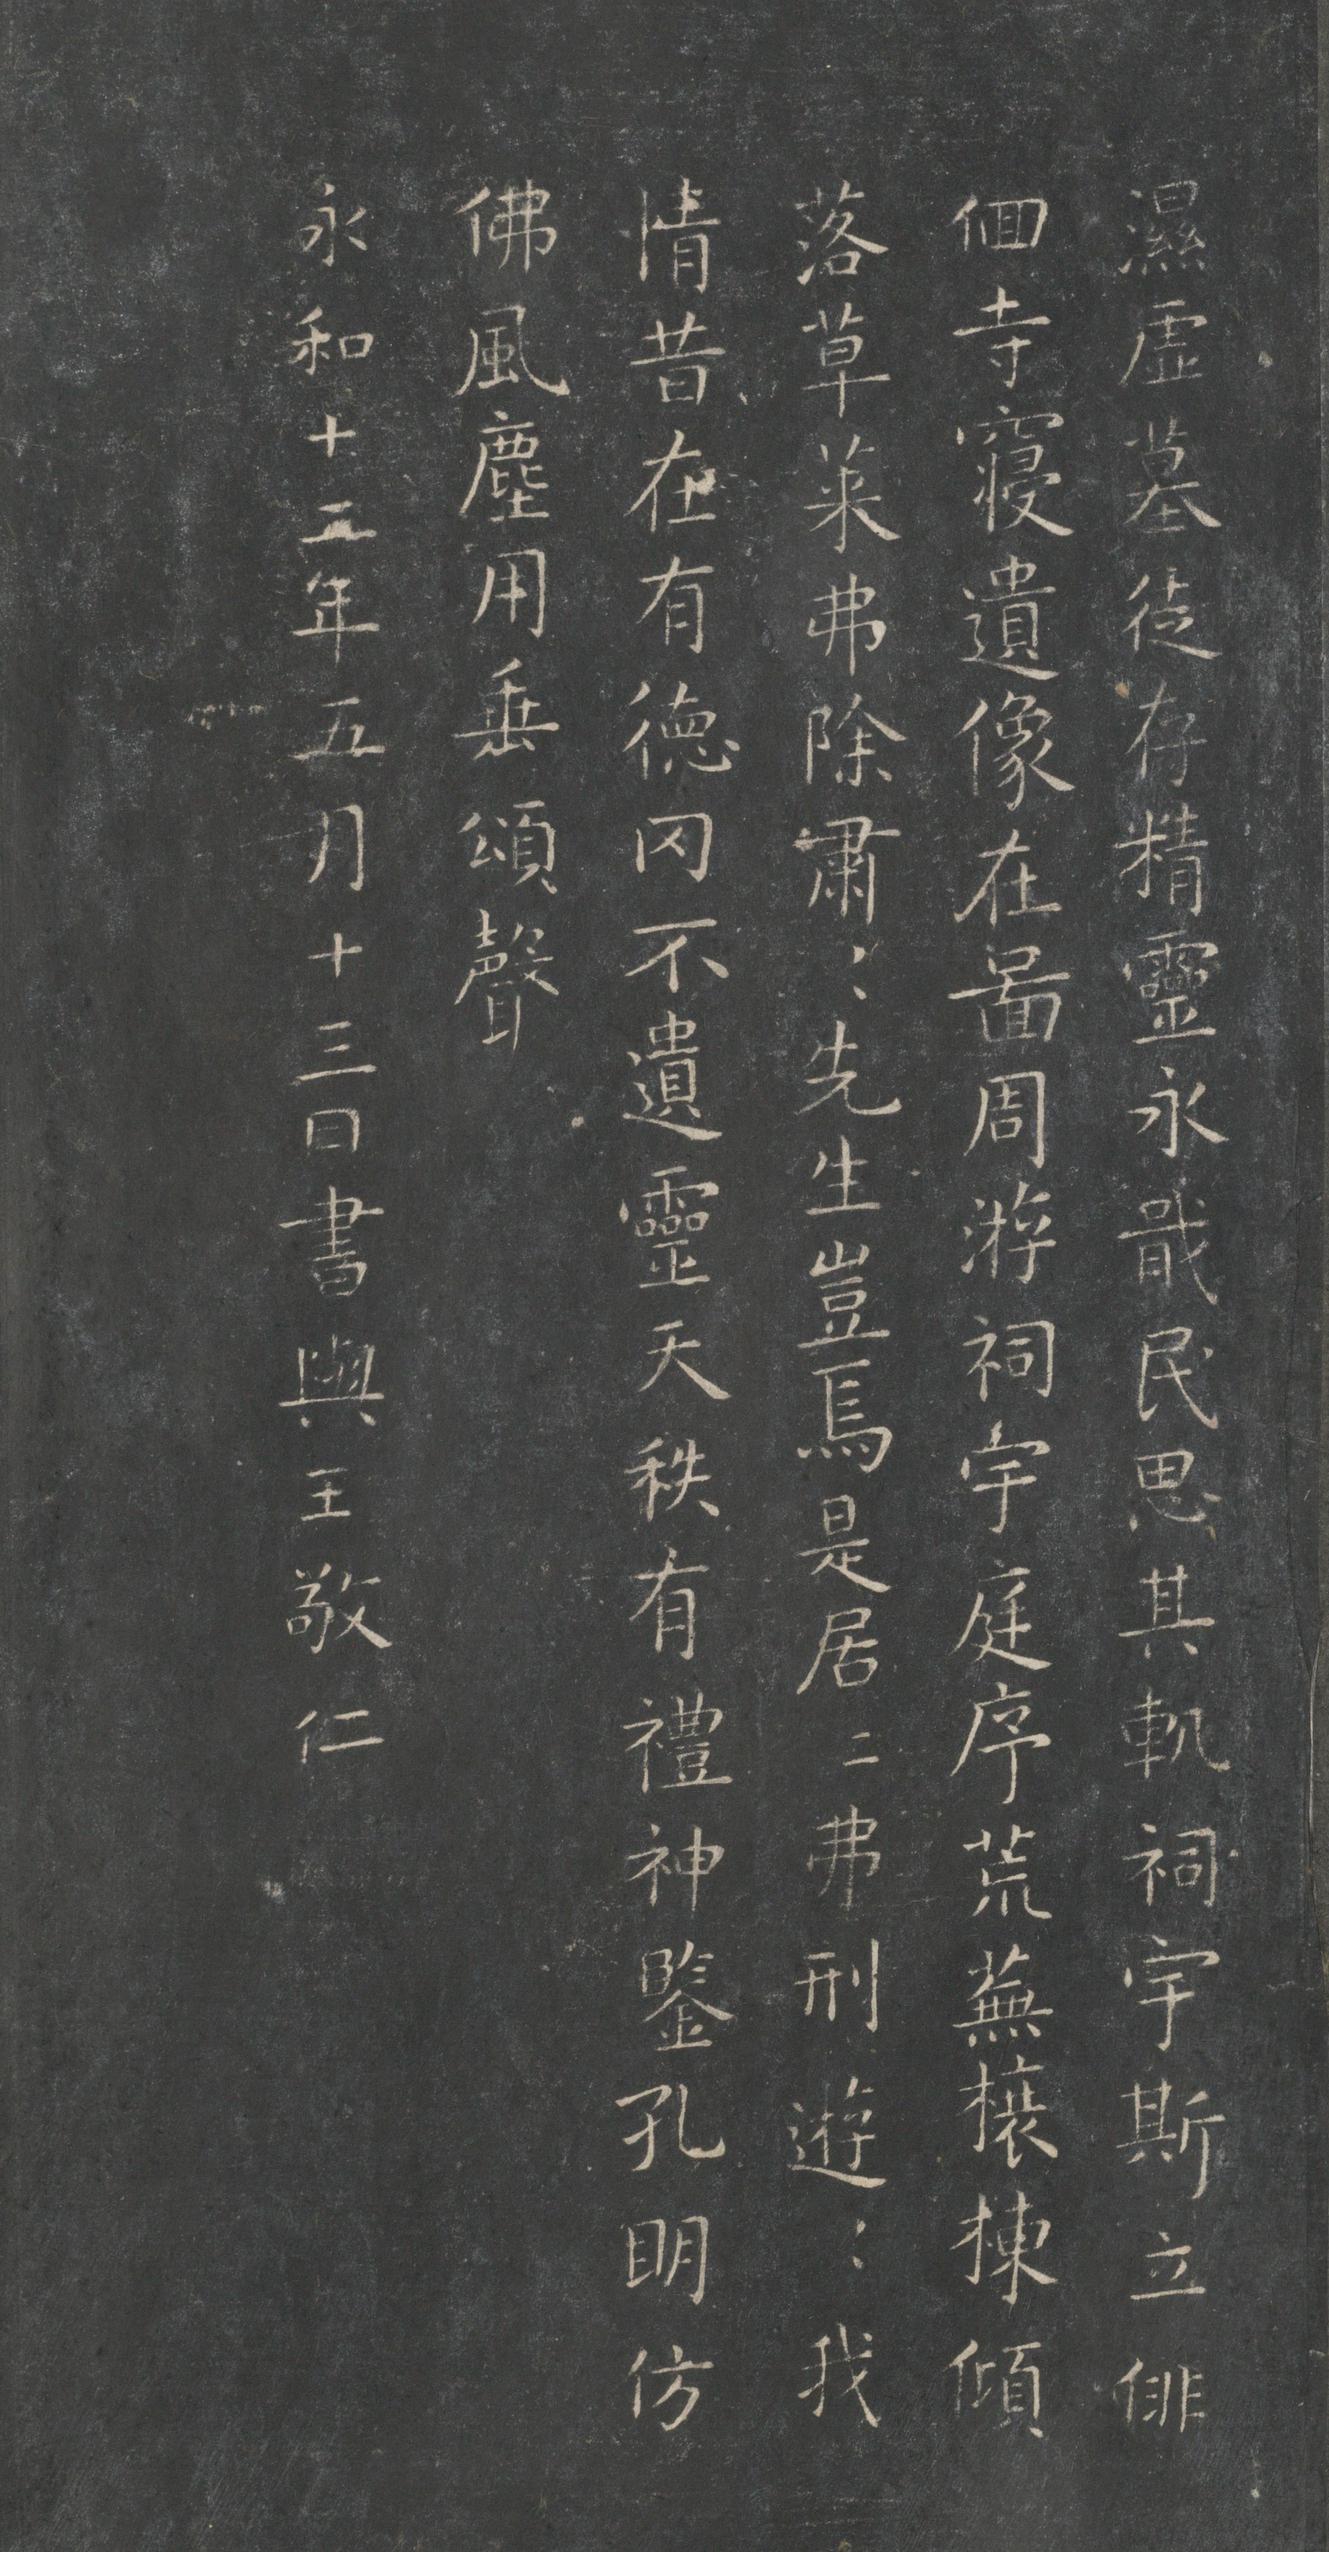 濕虛墓徒存精靈永戢民思其軌祠宇斯立俳
佪寺寑遺像在啚周游祠宇庭序荒蕪榱棟傾
落草萊弗除肅〻先生豈焉是居〻弗刑遊〻我
情昔在有德罔不遺靈天秩有禮神鑒孔明仿
佛風塵用垂頌聲
永和十二年五月十三日書與王敬仁